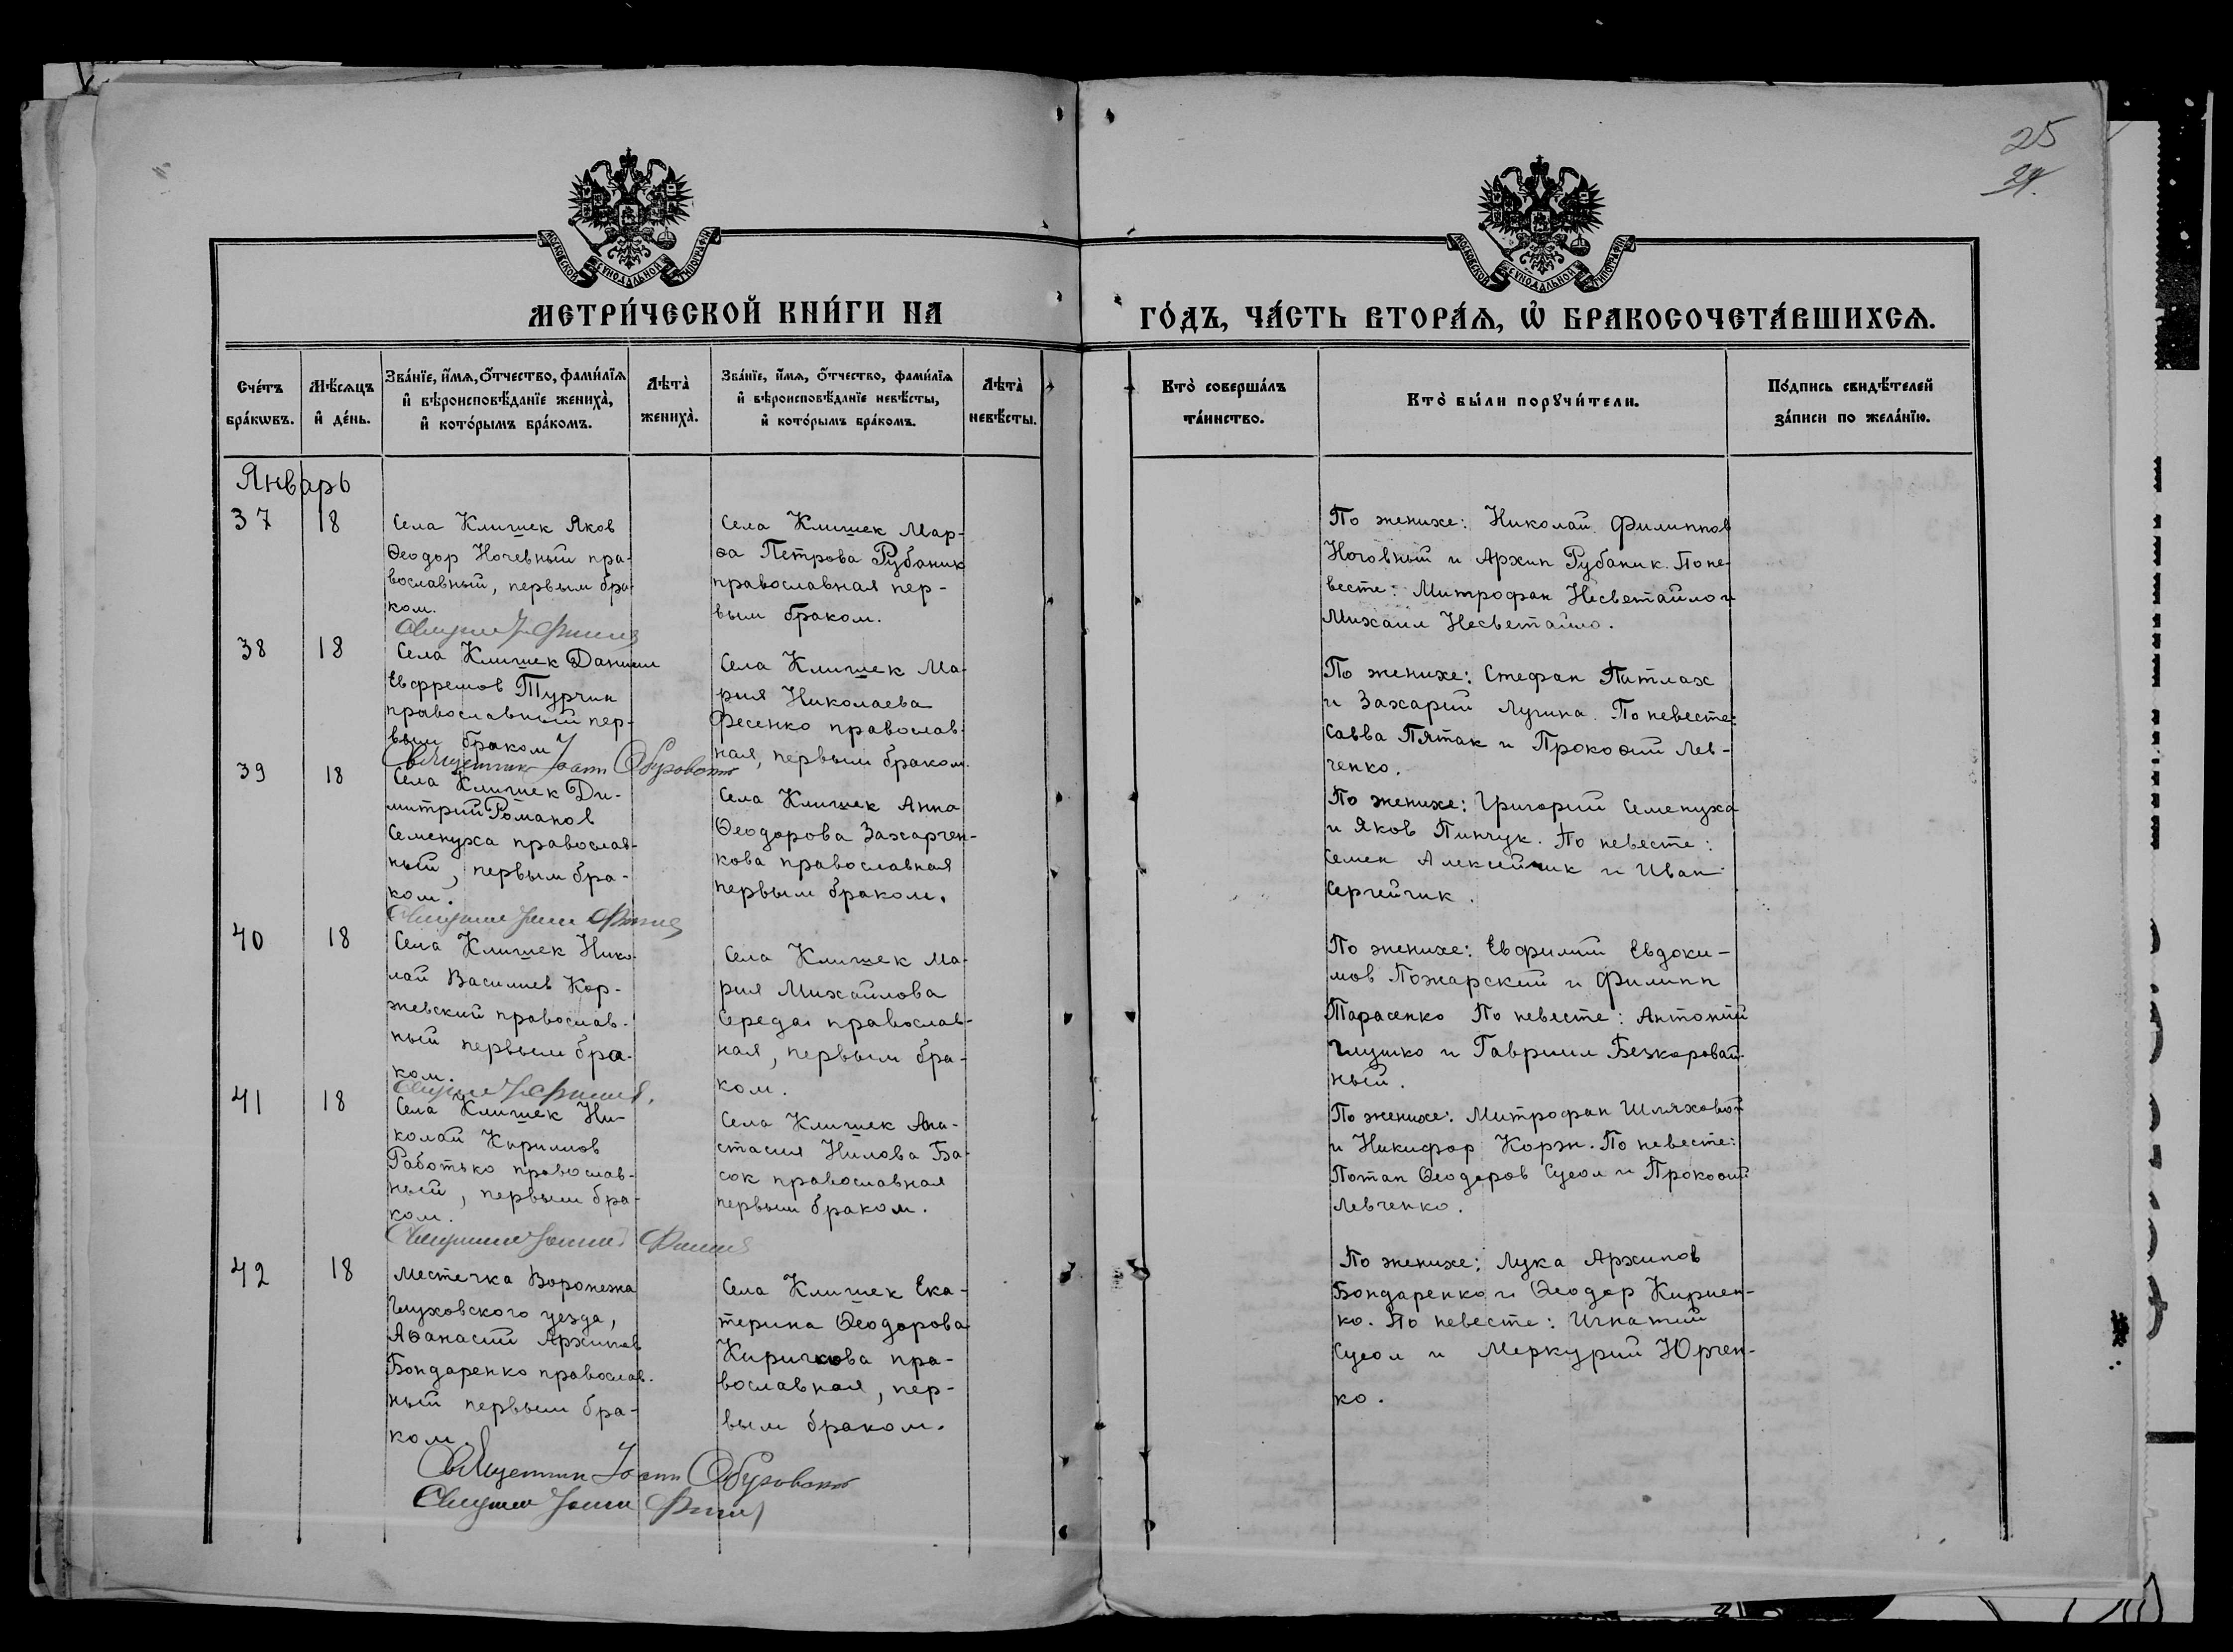 25
24.
МОСКОВСКОЙ СѴНОДАЛЬНОЙ ТИПОГРАФІИ
МОСКОВСКОЙ СѴНОДАЛЬНОЙ ТИПОГРАФІИ
МЕТРИ́ЧЕСКОЙ КНИ́ГИ НА
ГО́ДЪ, ЧА́СТЬ ВТОРА́Ѧ, Ѽ БРАКОСОЧЕТА́ВШИХСѦ.
Счє́тъ
бра́кѡвъ.
Мѣ́сѧцъ
и҆ де́нь.
Зва́нїе, и҆́мѧ, ѻ҆́тчество, фами́лїѧ
и҆ вѣроисповѣ́данїе жениха̀,
и҆ кото́рымъ бра́комъ.
Лѣта̀
жениха̀.
Зва́нїе, и҆́мѧ, ѻ҆́тчество, фами́лїѧ
и҆ вѣроисповѣ́данїе невѣ́сты,
и҆ кото́рымъ бра́комъ.
Лѣта̀
невѣ́сты.
Кто̀ соверша́лъ
та́инство.
Кто̀ бы́ли порꙋчи́тели.
По́дпись свидѣ́телей
за́писи по жела́нїю.
Январь
37
18
Села Клишек Яков
Ѳеодор Ночевный пра-
вославный, первым бра-
ком.
Села Клишек Мар-
ѳа Петрова Рубаник
православная пер-
вым браком.
По женихе: Николай Филиппов
Ночовный и Архип Рубаник. По не-
весте: Митрофан Несветайло и
Михаил Несветайло.
38
18
Села Клишек Даниил
Евфремов Турчин
православный пер-
вым браком
Священник Иоанн
Села Клишек Ма-
рия Николаева
Фесенко православ-
ная, первым браком.
По женихе: Стефан Питлах
и Захарий Лугина. По невесте:
Савва Пятак и Прокоѳий Лев-
ченко.
39
18
Села Клишек Ди-
митрий Романов
Семенуха православ-
ный, первым бра-
ком.
Села Клишек Анна
Ѳеодорова Захарчен-
кова православная
первым браком.
По женихе: Григорий Семенуха
и Яков Пинчук. По невесте:
Семен Алексийчик и Иван
Сергейчик.
40
18
Села Клишек Нико-
лай Василиев Кор-
жевский православ-
ный первым бра-
ком.
Села Клишек Ма-
рия Михайлова
Середа православ-
ная, первым бра-
ком.
По женихе: Евфимий Евдоки-
мов Пожарский и Филипп
Тарасенко По невесте: Антоний
Глушко и Гавриил Безкоровай-
ный.
41
18
Села Клишек Ни-
колай Кирилов
Работько православ-
ный, первым бра-
ком.
Села Клишек Ана-
стасия Нилова Ба-
сок православная
первым браком.
По женихе: Митрофан Шляховой
и Никифор Корж. По невесте:
Потап Ѳеодоров Сусол и Прокоѳий
Левченко.
42
18
Местечка Воронежа
Глуховского уезда,
Аѳанасий Архипов
Бондаренко православ-
ный первым бра-
ком.
Села Клишек Ека-
терина Ѳеодорова
Киричкова пра-
вославная, пер-
вым браком.
По женихе: Лука Архипов
Бондаренко и Ѳеодор Кириен-
ко. По невесте: Игнатий
Сусол и Меркурий Юрчен-
ко.
Священник Иоанн